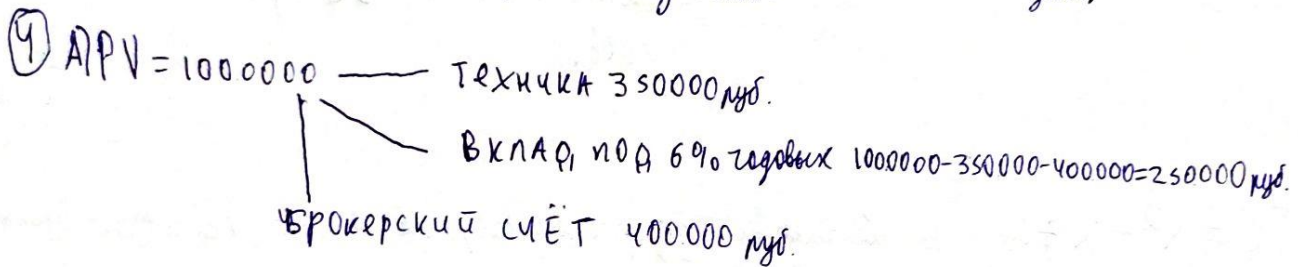 ④ А) PV = 1000000 — Техника 350000 руб.
Вклад под 6% годовых 1000000-350000-400000=250000 руб.
Брокерский счёт 400.000 руб.